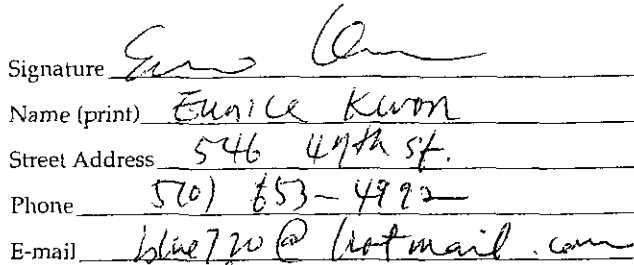 Signature
Name (print) Eunice Kwon
Street Address 546 49th st.
Phone 510) 653-4992
E-mail blue720@hotmail.com